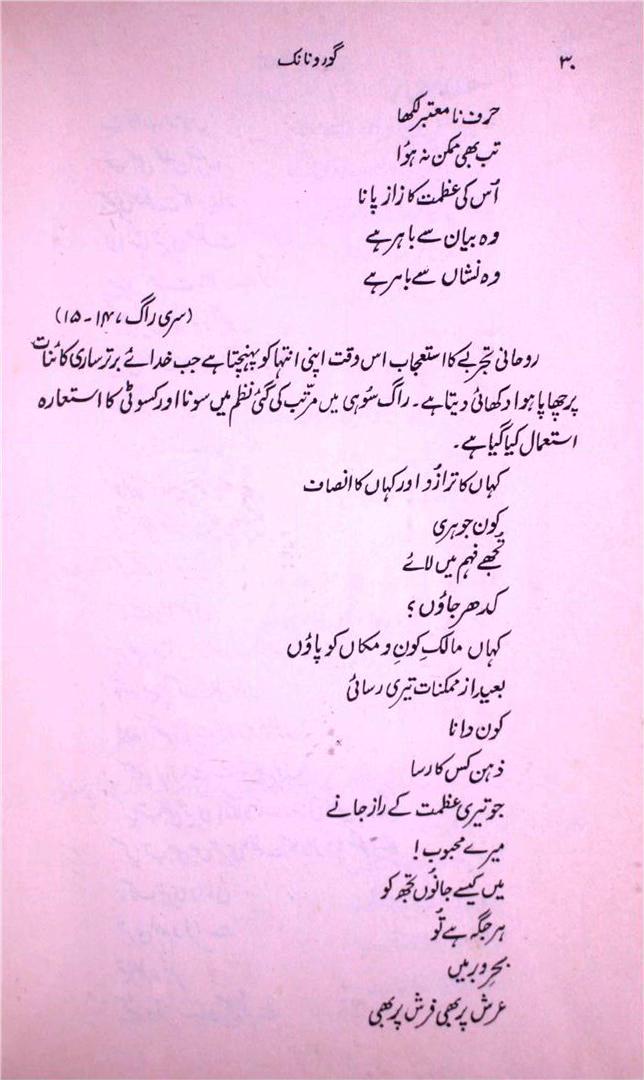 ۳۰ گورو نانک
حرف نا معتبر لکھا
تب بھی ممکن نہ ہُوا
اُس کی عظمت کا راز پانا
وہ بیان سے باہر ہے
وہ نشاں سے باہر ہے
(سری راگ ۱۴۷ - ۱۵)
روحانی تجربے کا استعجاب اس وقت اپنی انتہا کو پہنچتا ہے جب خدائے برتر ساری کائنات
پر چھایا ہوا دکھائی دیتا ہے۔ راگ سُوہی میں مرتّب کی گئی نظم میں سونا اور کسوٹی کا استعارہ
استعمال کیا گیا ہے۔
کہاں کا ترازُو اور کہاں کا انصاف
کون جوہری
تُجھے فہم میں لائے
کدھر جاؤں؟
کہاں مالکِ کون و مکاں کو پاؤں
بعید از ممکنات تیری رسائی
کون دانا
ذہن کس کا رسا
جو تیری عظمت کے راز جانے
میرے محبوب!
میں کیسے جانُوں تجھ کو
ہر جگہ ہے تُو
بحر و بر میں
عرش پر بھی فرش پر بھی